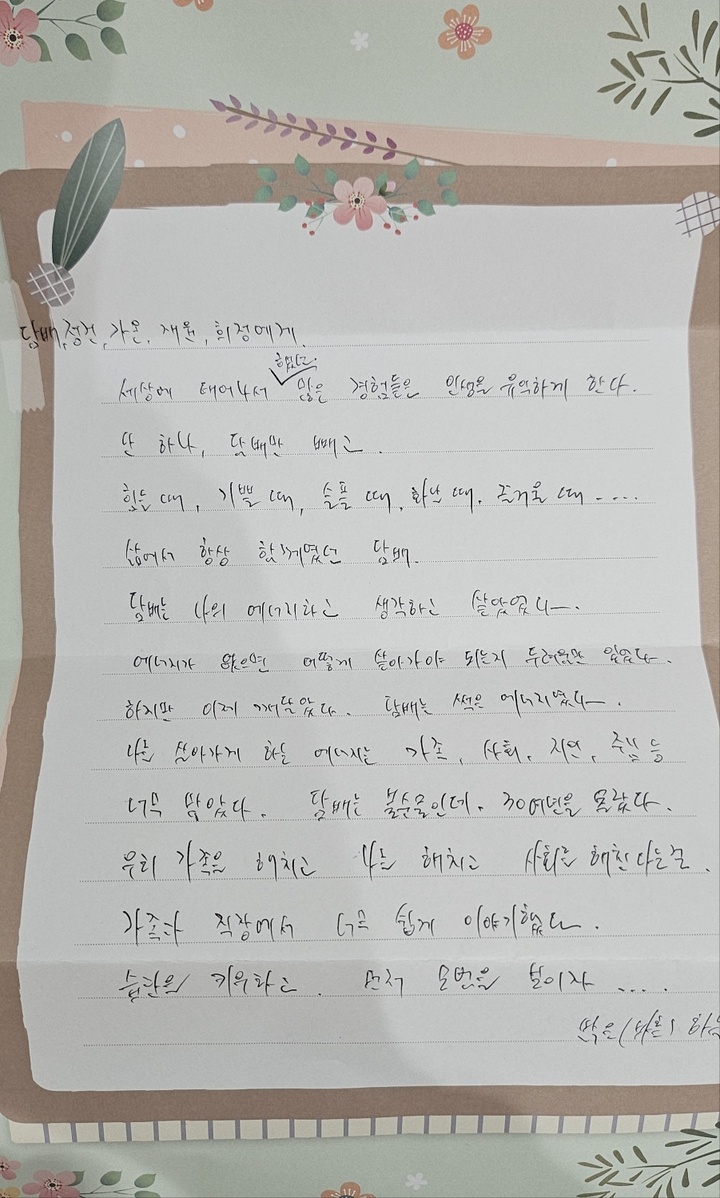 담배, 정건, 가온, 재윤, 희정에게.
하였고.
세상에 태어나서 많은 경험들은 인생을 유익하게 한다.
단 하나, 담배만 빼고.
힘들때, 기쁠때, 슬플때, 화난때, 즐거울때 ....
삶에서 항상 함께였던 담배.
담배는 나의 에너지라고 생각하고 살았었다.
에너지가 없으면 어떻게 살아가야 되는지 두려움만 있었다.
하지만 이제 깨달았다. 담배는 썩은 에너지였다.
나를 살아가게 하는 에너지는 가족, 사회, 지인, 등
너무 많았다. 담배는 불순물인데, 30여년을 몰랐다.
우리 가족을 해치고 나를 해치고 사회를 해친다는걸.
가족과 직장에서 너무 쉽게 이야기했다.
습관을 키우라고. 먼저 모범을 보이자 ....